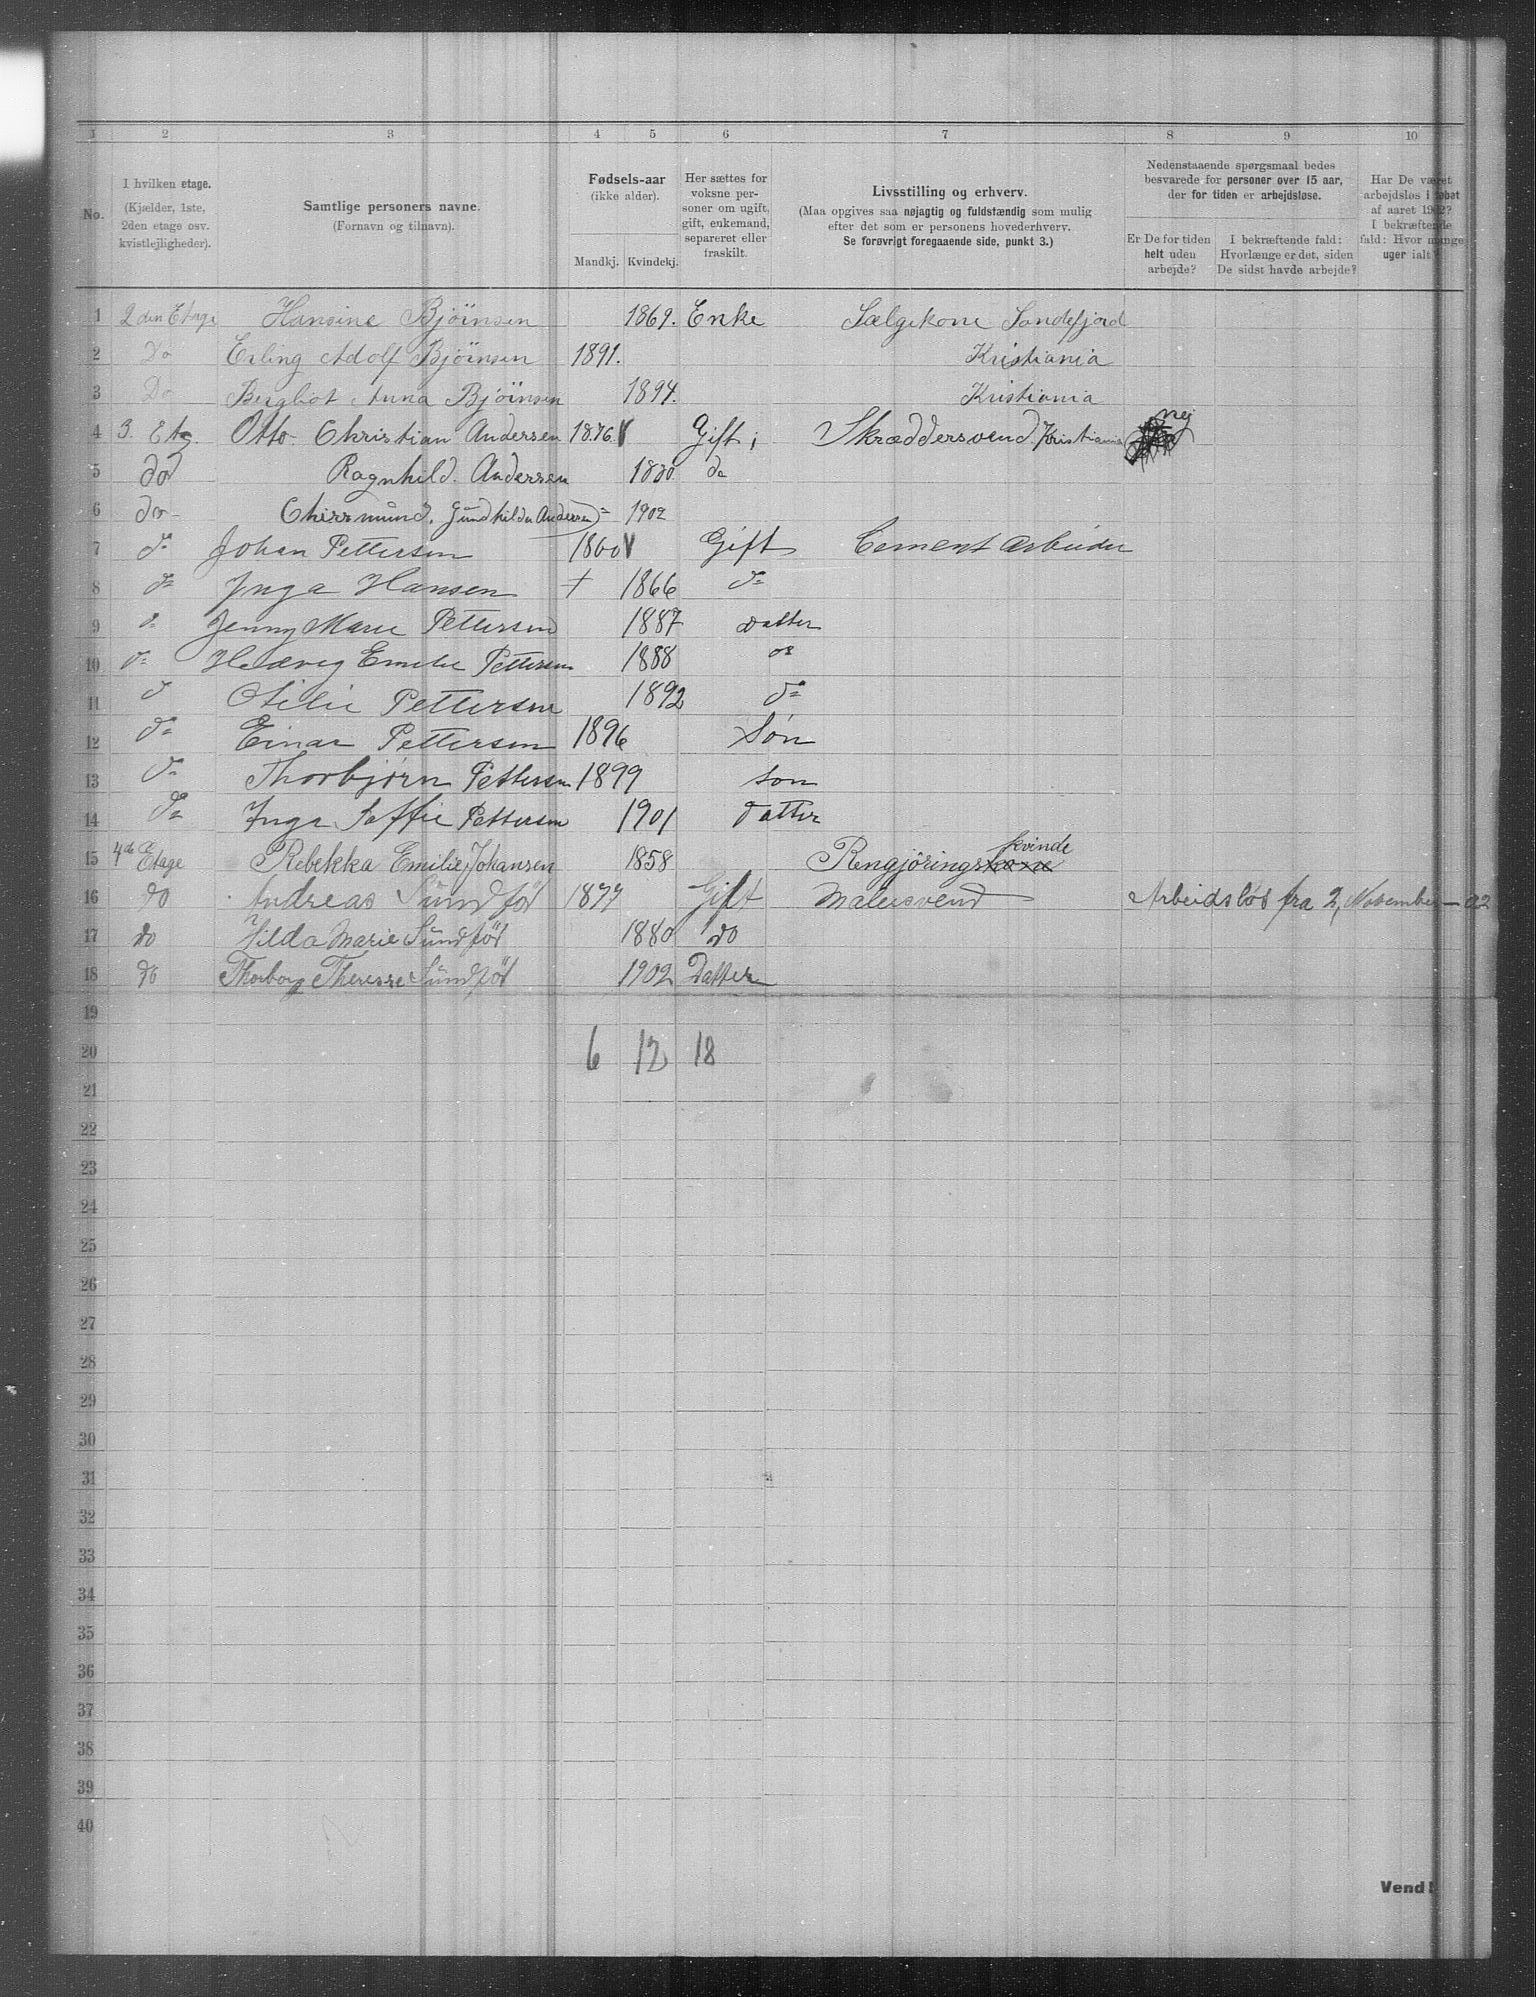 1 2 3 4 5 6 7 8 9 10
No.
I hvilken etage.
(Kjælder, 1ste,
2den etage osv.
kvistlejligheder).
Samtlige personers navne.
(Fornavn og tilnavn).
Fødsels-aar
(ikke alder).
Mandkj. Kvindekj.
Her sættes for
voksne per-
soner om ugift,
gift, enkemand,
separeret eller
fraskilt.
Livsstilling og erhverv.
(Maa opgives saa nøjagtig og fuldstændig som mulig
efter det som er personens hovederhverv.
Se forøvrigt foregaaende side, punkt 3.)
Nedenstaaende spørgsmaal bedes
besvarede for personer over 15 aar,
der for tiden er arbejdsløse.
Er De for tiden
helt uden
arbejde?
I bekræftende fald:
Hvorlænge er det, siden
De sidst havde arbejde?
Har De været
arbejdsløs i løbet
af aaret 1902?
I bekræftende
fald: Hvor mange
uger ialt?
1 2 den Etage Hansine Bjørnsen 1869. Enke Sælgekone Sandefjord
2 Do Erling Adolf Bjørnsen 1891. Kristiania
3 Do Bergliot Anna Bjørnsen 1894. Kristiania
4 3. Etg. Otto Christian Andersen 1876. Gift; Skræddersvend Kristiania nej
5 do Ragnhild. Andersen 1880. do
6 do Gundhilda Andersen 1902
7 do Johan Pettersen 1860 Gift Cement Arbeider
8 do Inga Hansen + 1866 do
9 do Jenny Marie Pettersen 1887 Datter
10 do Hedvig Emilie Pettersen 1888 do
11 do Otilie Pettersen 1892 do
12 do Einar Pettersen 1896 Søn
13 do Thorbjørn Pettersen 1899 Søn
14 do Inga Soffie Pettersen 1901 Datter
15 4de Etage Rebekka Emilie Johansen 1858 Rengjøringskvinde
16 do Andreas Sundfør 1877 Gift Malersvend Arbeidsløs fra 2, November – 02
17 do Hilda Marie Sundfør 1880 do
18 do Thorborg Theresse Sundfør 1902 Datter
19
20 6 12 18
21
22
23
24
25
26
27
28
29
30
31
32
33
34
35
36
37
38
39
40
Vend!